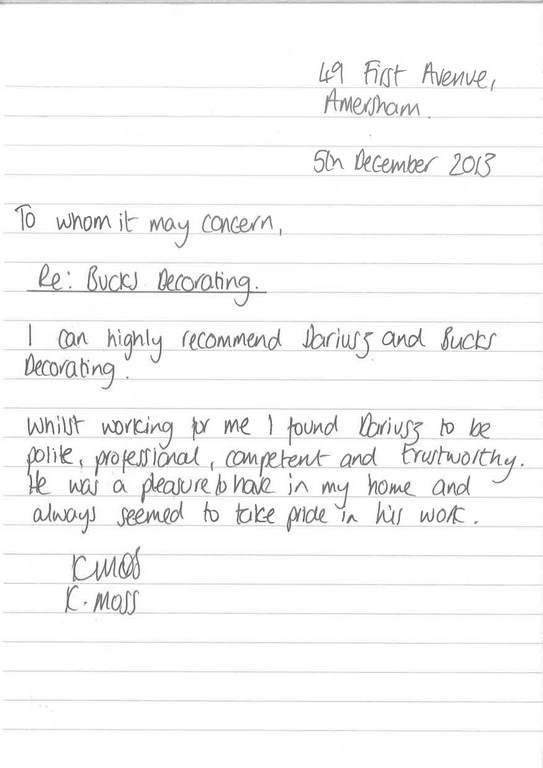 49 First Avenue,
Amersham.
5th December 2013
To whom it may concern,
Re: Bucks Decorating.
I can highly recommend Dariusz and Bucks
Decorating.
Whilst working for me I found Dariusz to be
polite, professional, competent and trustworthy.
He was a pleasure to have in my home and
always seemed to take pride in his work.
K Moss
K. Moss